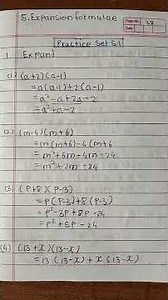 5. Expansion formulae
Practice Set 5.1
1. Expand
(1) (a+2)(a-1)
= a(a-1)+2(a-1)
= a²-a+2a-2
= a²+a-2
(2) (m-4)(m+6)
= m(m+6)-4(m+6
= m²+6m-4m-24
= m²+2m-24
(3) (p+8)(p-3)
= p(p-3)+8(p-3)
= p²-3p+8p-24
= p²+5p-24
(4) (13+x)(13-x)
= 13(13-x)+x(13-x)